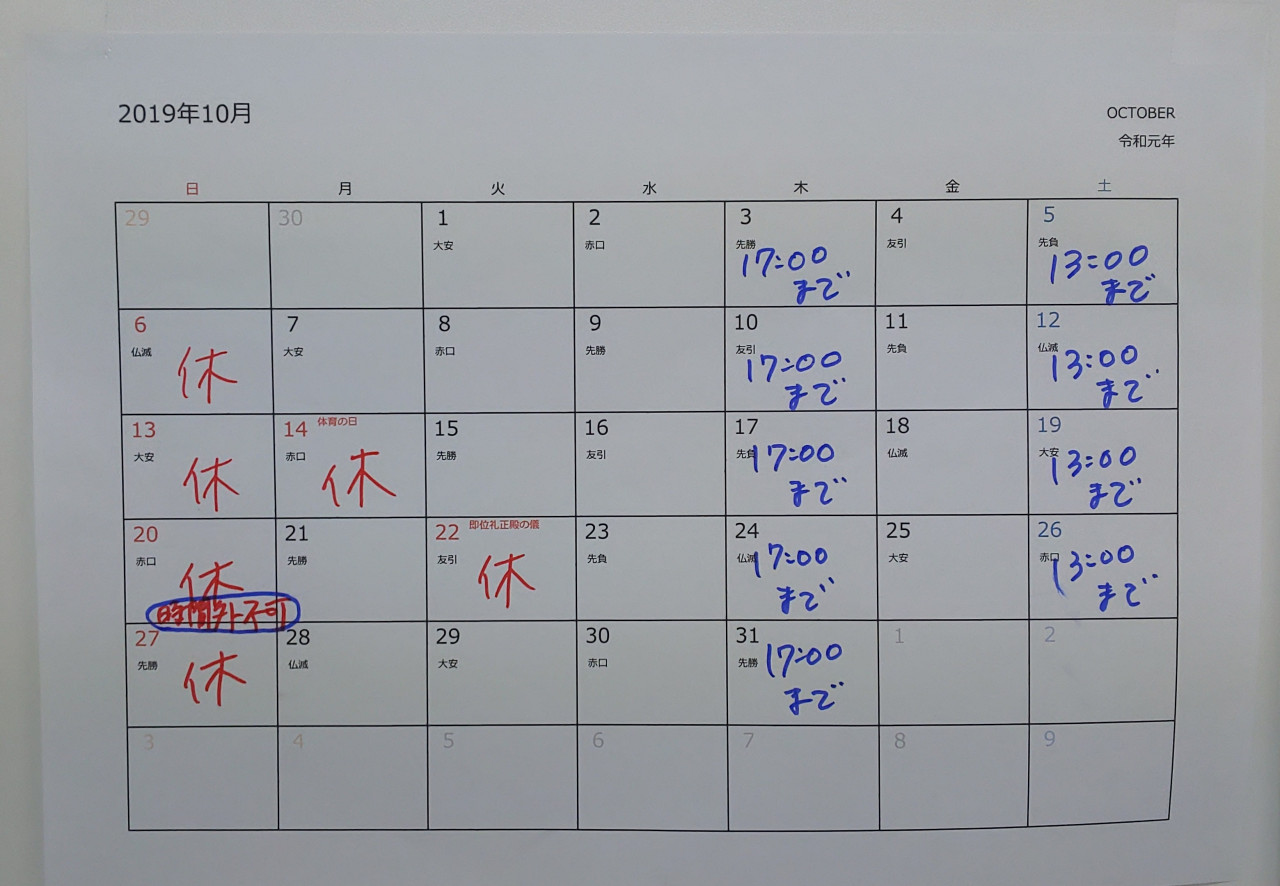 2019年10月
OCTOBER
令和元年
日 月 火 水 木 金 土
29 30 1 2 3 4 5
大安 赤口 先勝 友引 先負
17:00 13:00
まで まで
6 7 8 9 10 11 12
仏滅 大安 赤口 先勝 友引 先負 仏滅
休 17:00 13:00
まで まで
13 14 体育の日 15 16 17 18 19
大安 赤口 先勝 友引 先負 仏滅 大安
休 休 17:00 13:00
まで まで
20 21 22 即位礼正殿の儀 23 24 25 26
赤口 先勝 友引 先負 仏滅 大安 赤口
休 休 17:00 13:00
時間外不可 まで まで
27 28 29 30 31 1 2
先勝 仏滅 大安 赤口 先勝
休 17:00
まで
3 4 5 6 7 8 9